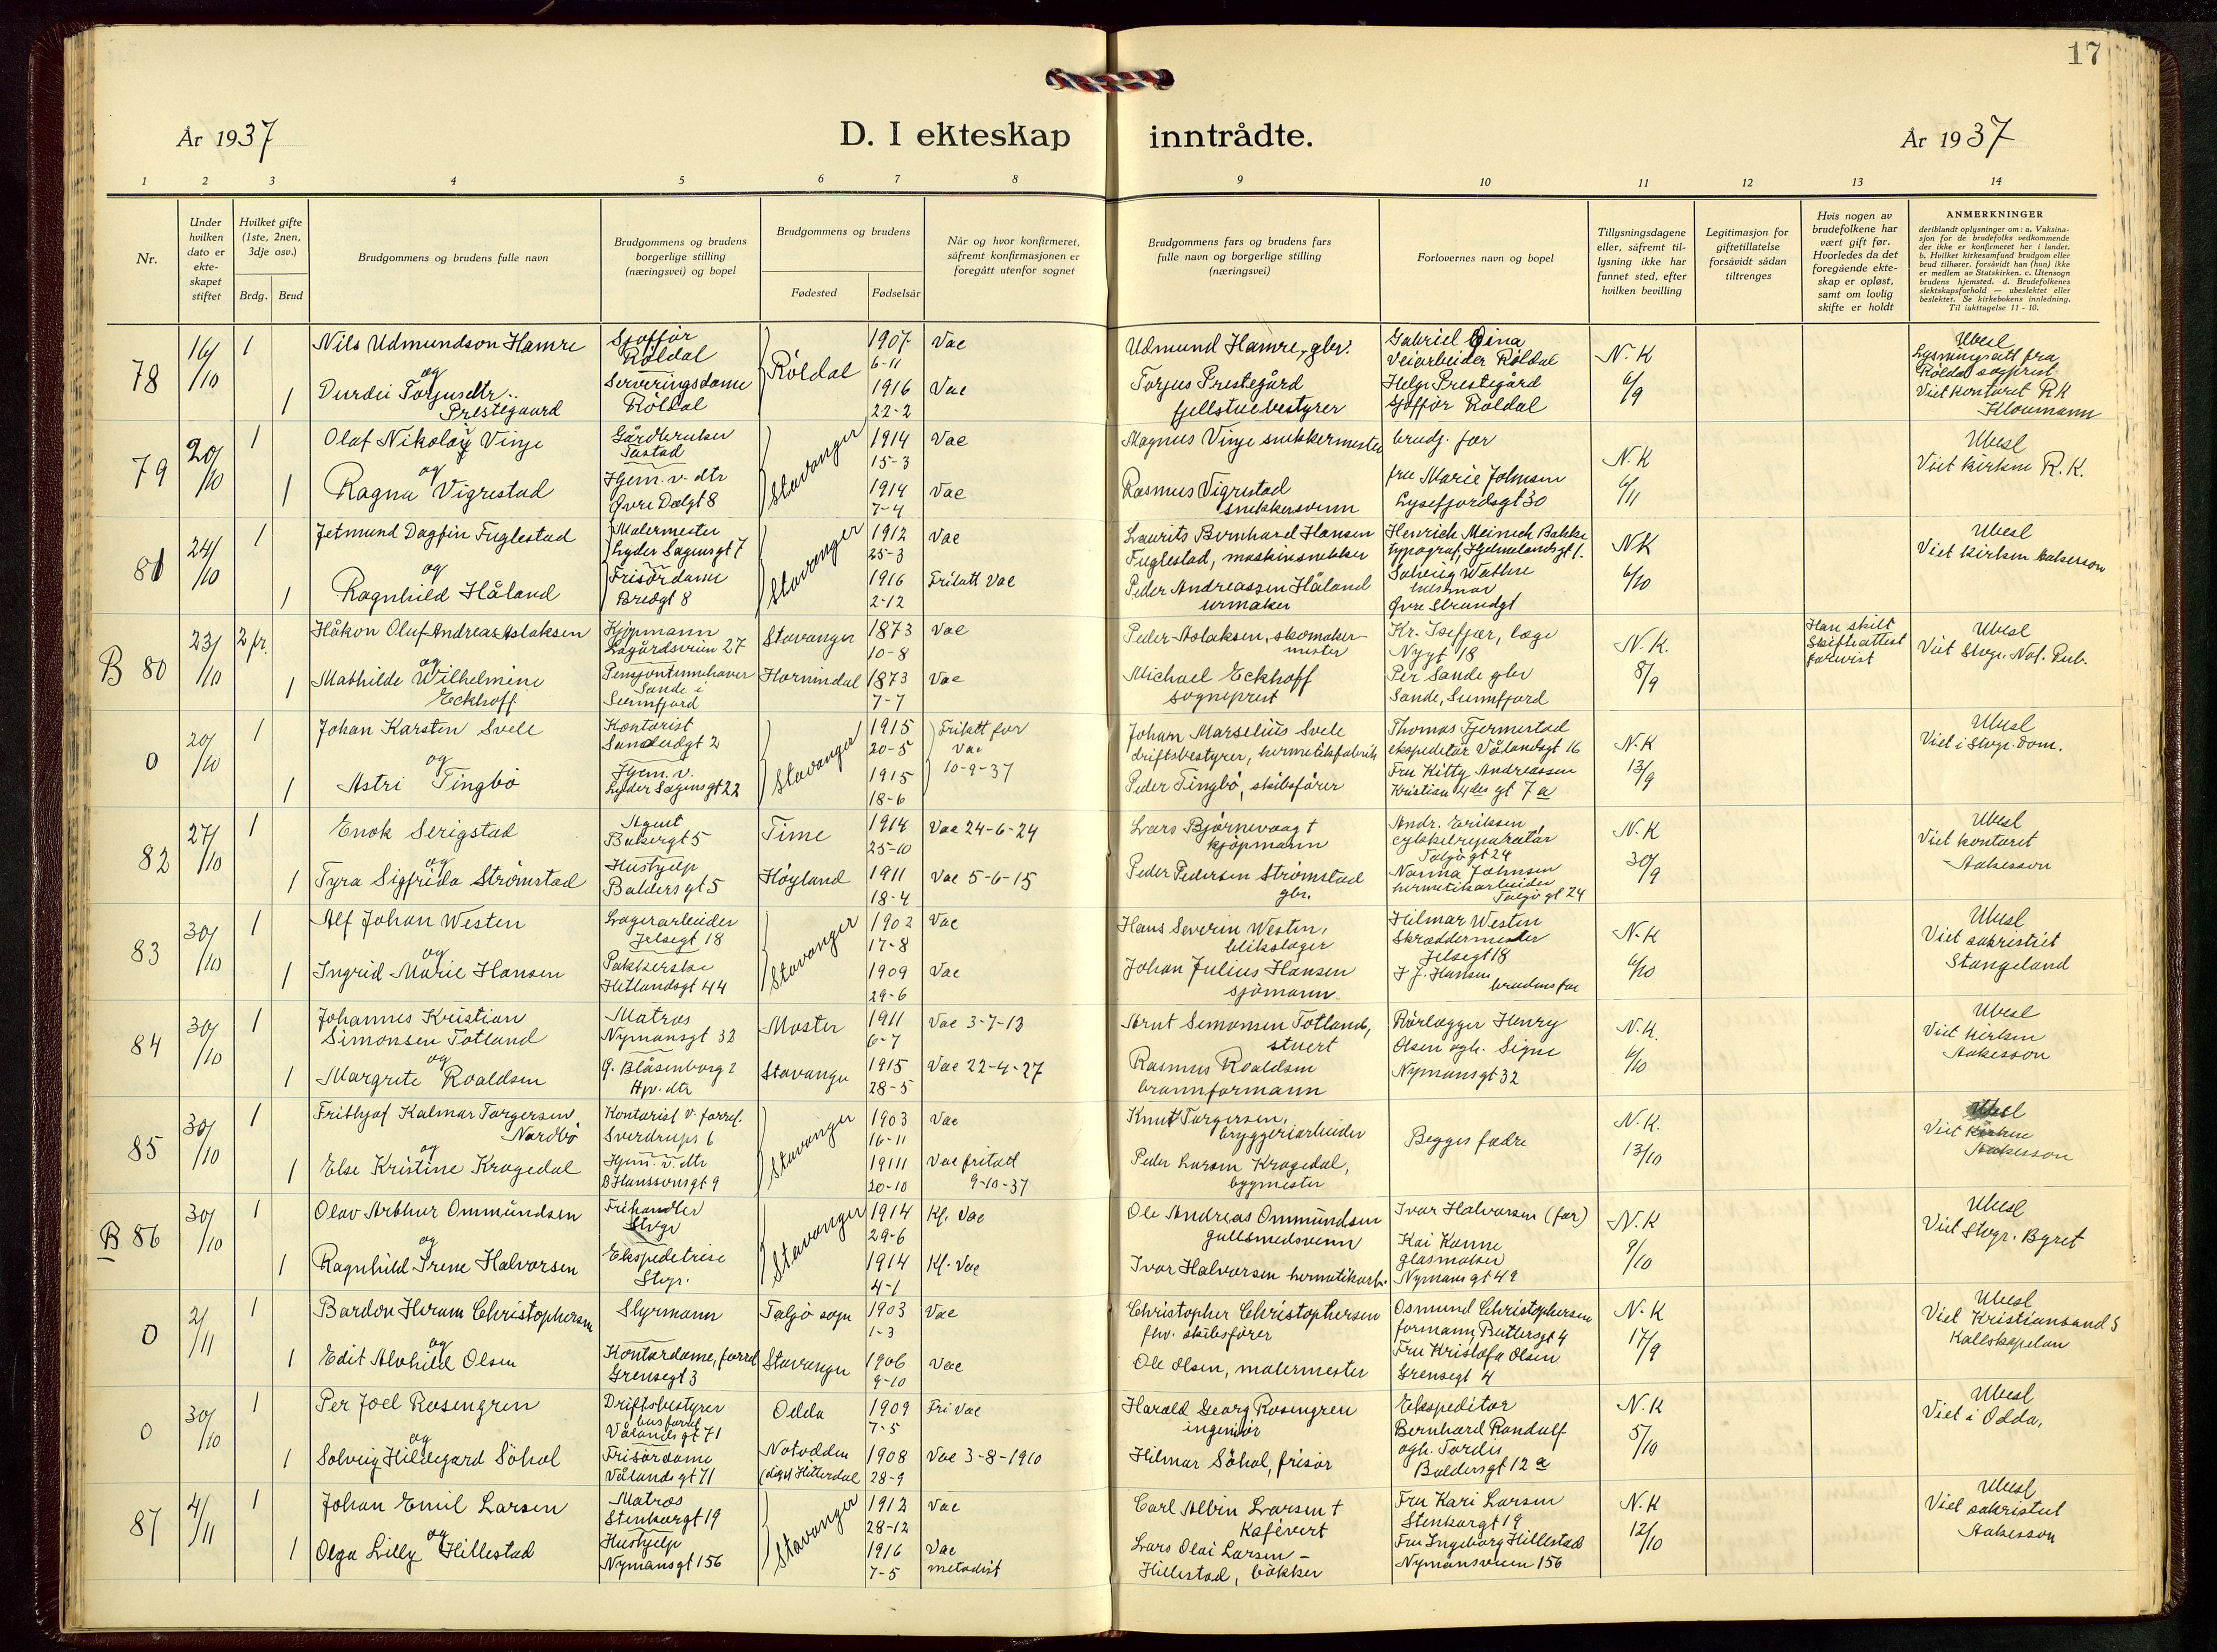 17
År 1937
D. I ekteskap inntrådte.
År 1937
1 2 3 4 5 6 7 8 9 10 11 12 13 14
Nr.
Under hvilken dato er ekteskapet stiftet
Hvilket gifte (1ste, 2nen, 3dje osv.)
Brdg. Brud
Brudgommens og brudens fulle navn
Brudgommens og brudens borgerlige stilling (næringsvei) og bopel
Brudgommens og brudens
Fødested
Fødselsår
Når og hvor konfirmeret, såfremt konfirmasjonen er foregått utenfor sognet
Brudgommens fars og brudens fars fulle navn og borgerlige stilling (næringsvei)
Forlovernes navn og bopel
Tillysningsdagene eller, såfremt tillysning ikke har funnet sted, efter hvilken bevilling
Legitimasjon for giftetillatelse forsåvidt sådan tiltrenges
Hvis nogen av brudefolkene har vært gift før. Hvorledes da det foregående ekteskap er opløst, samt om lovlig skifte er holdt
ANMERKNINGER
deriblandt oplysninger om: a. Vaksinasjon for de brudefolks vedkommende der ikke er konfirmeret her i landet. b. Hvilket kirkesamfund brudgom eller brud tilhører, forsåvidt han (hun) ikke er medlem av Statskirken. c. Utensogn brudens hjemsted. d. Brudefolkenes slektskapsforhold — ubeslektet eller beslektet. Se kirkebokens innledning. Til iakttagelse 11 - 10.
78 16/10 1 Nils Udmundson Hamre Sjåffør Röldal Röldal 1907 6-11 Vac Udmund Hamre, gbr. Gabriel Veiarbeider Röldal N.K 6/9 Ubesl
og
1 Torjusdtr. Prestegaard Serveringsdame Röldal 1916 22-2 Vac Torjus Prestegård fjellstuebestyrer Helge Prestegård Sjåffør Röldal Lysningsatt fra Röldal sogneprest Viet kontoret RK Kloumann
79 20/10 1 Olaf Nikolay Vinje Gårdbruker Tastad Stavanger 1914 15-3 Vac Magnus Vinje snekkermester brudg. far N.K 6/11 Ubesl
og
1 Ragna Vigrestad Hjem. v. dtr Øvre Dalgt 8 1914 7-4 Vac Rasmus Vigrestad snekkersvenn fru Marie Johnsen Lysefjordsgt 30 Viet kirken R.K.
81 24/10 1 Jetmund Dagfin Fuglestad Malermester Lyder Sagensgt 7 Stavanger 1912 25-3 Vac Laurits Bernhard Hansen Fuglestad, maskinsnekker Henrich Meinich Bakke typograf, Hjelmelandsgt 1. NK 6/10 Ubesl
og
1 Ragnhild Håland Frisördame Bredgt 8 1916 2-12 Fritatt Vac Peder Andreassen Håland urmaker Solveig Wathne Øvre Strandgt Viet kirken Aakesson
B 80 23/10 2 fr. Håkon Oluf Andreas Aslaksen Kjöpmann Lagårdsveien 27 Stavanger 1873 10-8 Vac Peder Aslaksen, skomakermester Kr. Isefjær, læge Nygt 18 N.K. 8/9 Han skilt Skifteattest forevist Ubesl
og
1 Mathilde Wilhelmine Eckhoff Pensjonatinnehaver Sande i Sunnfjord Hornindal 1873 7-7 Vac Michael Eckhoff sogneprest Per Sande gbr Sande, Sunnfjord Viet Stvgr. Not. Pub.
0 20/10 1 Johan Karsten Svele Kontorist Sandeidgt 2 Stavanger 1915 20-5 Fritatt for Vac 10-9-37 Johan Marselius Svele driftsbestyrer, hermetikfabrik Thomas Fjermestad ekspeditör Vålandsgt 16 N.K 13/9 Ubesl
og
1 Astri Tingbö Hjem. v. Lyder Sagensgt 22 1915 18-6 Peder Tingbö, skibsförer Fru Kitty Andreassen Kristian 4des gt 7a Viet i Stvgr. Dom.
82 27/10 1 Enok Serigstad Agent Bakergt 5 Time 1914 25-10 Vac 24-6-24 Lars Bjørnevaag † kjöpmann Andr. Eriksen cykkelreparatör Talgögt 24 N.K 30/9 Ubesl
og
1 Tyra Sigfrida Strømstad Hushjelp Baldersgt 5 Höyland 1911 18-4 Vac 5-6-15 Peder Pedersen Strömstad gbr. Nanna Johnsen hermetikarbeider Talgögt 24 Viet kontoret Aakesson
83 30/10 1 Alf Johan Westen Lagerarbeider Jelsegt 18 Stavanger 1902 17-8 Vac Hans Severin Westen, blikslager Hilmar Westen Skræddermester Jelsegt 18 N.K 6/10 Ubesl
og
1 Ingrid Marie Hansen Pakkerske Hetlandsgt 44 1909 29-6 Vac Johan Julius Hansen sjömann J. J. Hansen brudens far Viet sakristiet Stangeland
84 30/10 1 Johannes Kristian Simonsen Totland Matros Nymansgt 32 Moster 1911 6-7 Vac 3-7-13 Arnt Simonsen Totland, stuert Rörlægger Henry Olsen ogh. Signe Nymansgt 32 N.K. 6/10 Ubesl
og
1 Margrete Roaldsen G. Blåsenborg 2 Hjv. dtr Stavanger 1915 28-5 Vac 22-4-27 Rasmus Roaldsen brannformann Viet kirken Aakesson
85 30/10 1 Frithjof Kalmar Torgersen Nordbö Kontorist v. forref. Sverdrups 6 Stavanger 1903 16-11 Vac Knut Torgersen, bryggeriarbeider Begges fædre N.K. 13/10 Ubesl
og
1 Else Kristine Kragedal Hjem. v. dtr B Hanssonsgt 9 1911 20-10 Vac fritatt 9-10-37 Peder Larsen Kragedal, bygmester Viet kirken Aakesson
B 86 30/10 1 Olav Arthur Ommundsen Frihandler Stvgr Stavanger 1914 29-6 Kf. Vac Ole Andreas Ommundsen gullsmedsvenn Ivar Halvorsen (far) N.K 9/10 Ubesl
og
1 Ragnhild Irene Halvorsen Ekspeditrise Stvgr. 1914 4-1 Kf. Vac Ivar Halvorsen hermetikarb. Kai Kanne glasmaker Nymansgt 49 Viet Stvgr. Byret
0 2/11 1 Bardon Hiram Christophersen Styrmann Talgö sogn 1903 1-3 Vac Christopher Christophersen fhv. skibsfører Osmund Christophersen formann Ruttersgt 4 N.K 17/9 Ubesl
og
1 Edit Alvhild Olsen Kontordame, forref Grensegt 3 Stavanger 1906 9-10 Vac Ole Olsen, malermester Fru Kristofa Olsen Grensegt 4 Viet Kristiansand S Kallskapelan
0 30/10 1 Per Joel Rosengren Driftsbestyrer Vålandsgt 71 Odda 1909 7-5 Fri Vac Harald Georg Rosengren ingeniör Ekspeditör Bernhard Randulf N.K 5/10 Ubesl
og
1 Solveig Hildegard Söhol Frisördame Vålandsgt 71 Notodden Hitterdal 1908 28-9 Vac 3-8-1910 Hilmar Söhol, frisör ogh. Tordis Baldersgt 12a Viet i Odda,
87 4/11 1 Johan Emil Larsen Matros Stenkargt 19 Stavanger 1912 28-12 Vac Carl Alvin Larsen † Kafévert Fru Kari Larsen Stenkargt 19 N.K 12/10 Ubesl
og
1 Olga Lilly Hillestad Hushjelp Nymansgt 156 1916 7-5 Vac metodist Lars Olai Larsen - Hillestad, bökker Fru Ingeborg Hillestad Nymansveien 156 Viet sakristiet Aakesson